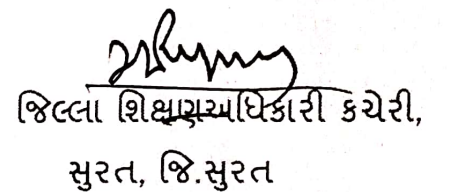 જિલ્લા શિક્ષણઅધિકારી કચેરી,
સુરત, જિ.સુરત